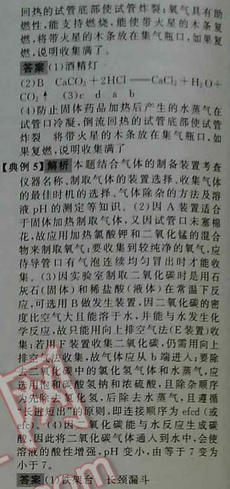 回热的试管底部使试管炸裂;氧气具有助
燃性,能支持燃烧,能使带火星的木条复
燃,将带火星的木条放在集气瓶口,如果复
燃,说明收集满了。
答案 (1)酒精灯
(2)B CaCO₃+2HCl══CaCl₂+H₂O+
CO₂↑ (3)c d a b
(4)防止固体药品加热后产生的水蒸气在
试管口冷凝,倒流回热的试管底部使试管
炸裂 将带火星的木条放在集气瓶口,如
果复燃,说明收集满了
【典例5】解析 本题结合气体的制备装置考查
仪器名称、制取气体的装置选择、收集气体
的最佳时机的选择、气体除杂的方法及溶
液pH的测定等知识。(2)因A装置适合
于固体加热制取气体,又因试管口未塞棉
花,故应用加热氯酸钾和二氧化锰的混合
物来制取氧气;要收集到较纯净的氧气,应
待导管口有气泡连续均匀冒出时才能收
集。(3)因实验室制取二氧化碳时是用石
灰石(固体)和稀盐酸(液体)在常温下反
应,可选用B做发生装置,因二氧化碳的密
度比空气大且能溶于水,并能与水发生化
学反应,故只能用向上排空气法(E装置)收
集;若用F装置收集二氧化碳,仍需用向上
排空气法收集,故气体应从b端进入;要除
去二氧化碳中的氯化氢气体和水蒸气,应
选用饱和碳酸氢钠和浓硫酸,且除杂顺序
为先除去氯化氢,后除去水蒸气,且遵循
“长进短出”的原则,即连接顺序为efcd(或
efc)。(4)因二氧化碳能与水反应生成碳
酸,因此将二氧化碳气体通入到水中,会使
溶液的酸性增强,pH变小,由等于7变为
小于7。
答案 (1)铁架台 长颈漏斗